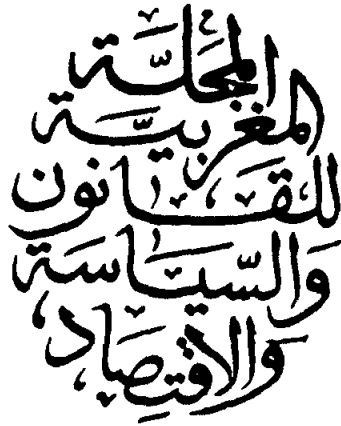 المجلة
المغربية
للقانون
والسياسة
والاقتصاد